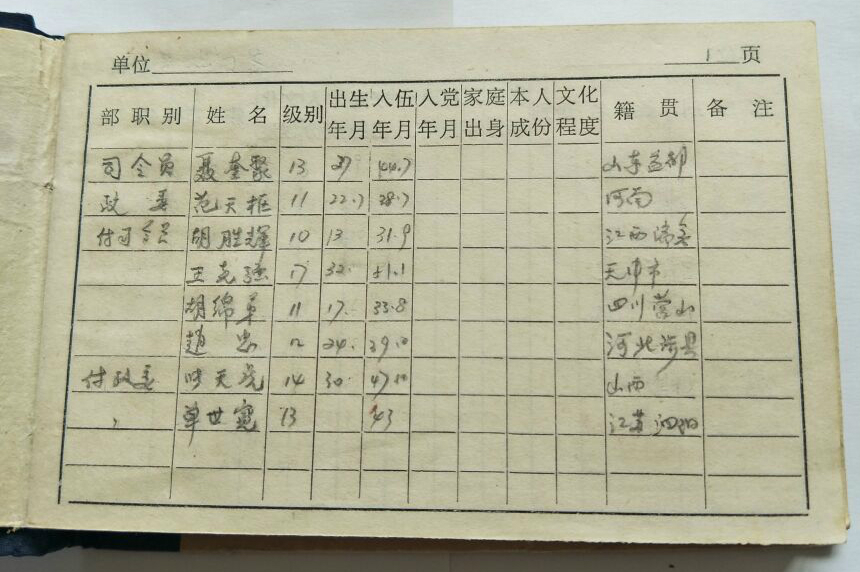 单位 1 页
部职别 姓名 级别 出生年月 入伍年月 入党年月 家庭出身 本人成份 文化程度 籍贯 备注
司令员 聂奎聚 13 27 44.7 山东益都
政委 范天枢 11 22.7 38.7 河南
付司令员 胡胜辉 10 13 31.9 江西
王克强 17 32. 51.1 天津市
胡绵 11 17. 33.8 四川营山
赵忠 12 24. 39.10 河北涉县
付政委 天虎 14 30. 47.10 山西
单世宽 13 43 江苏泗阳